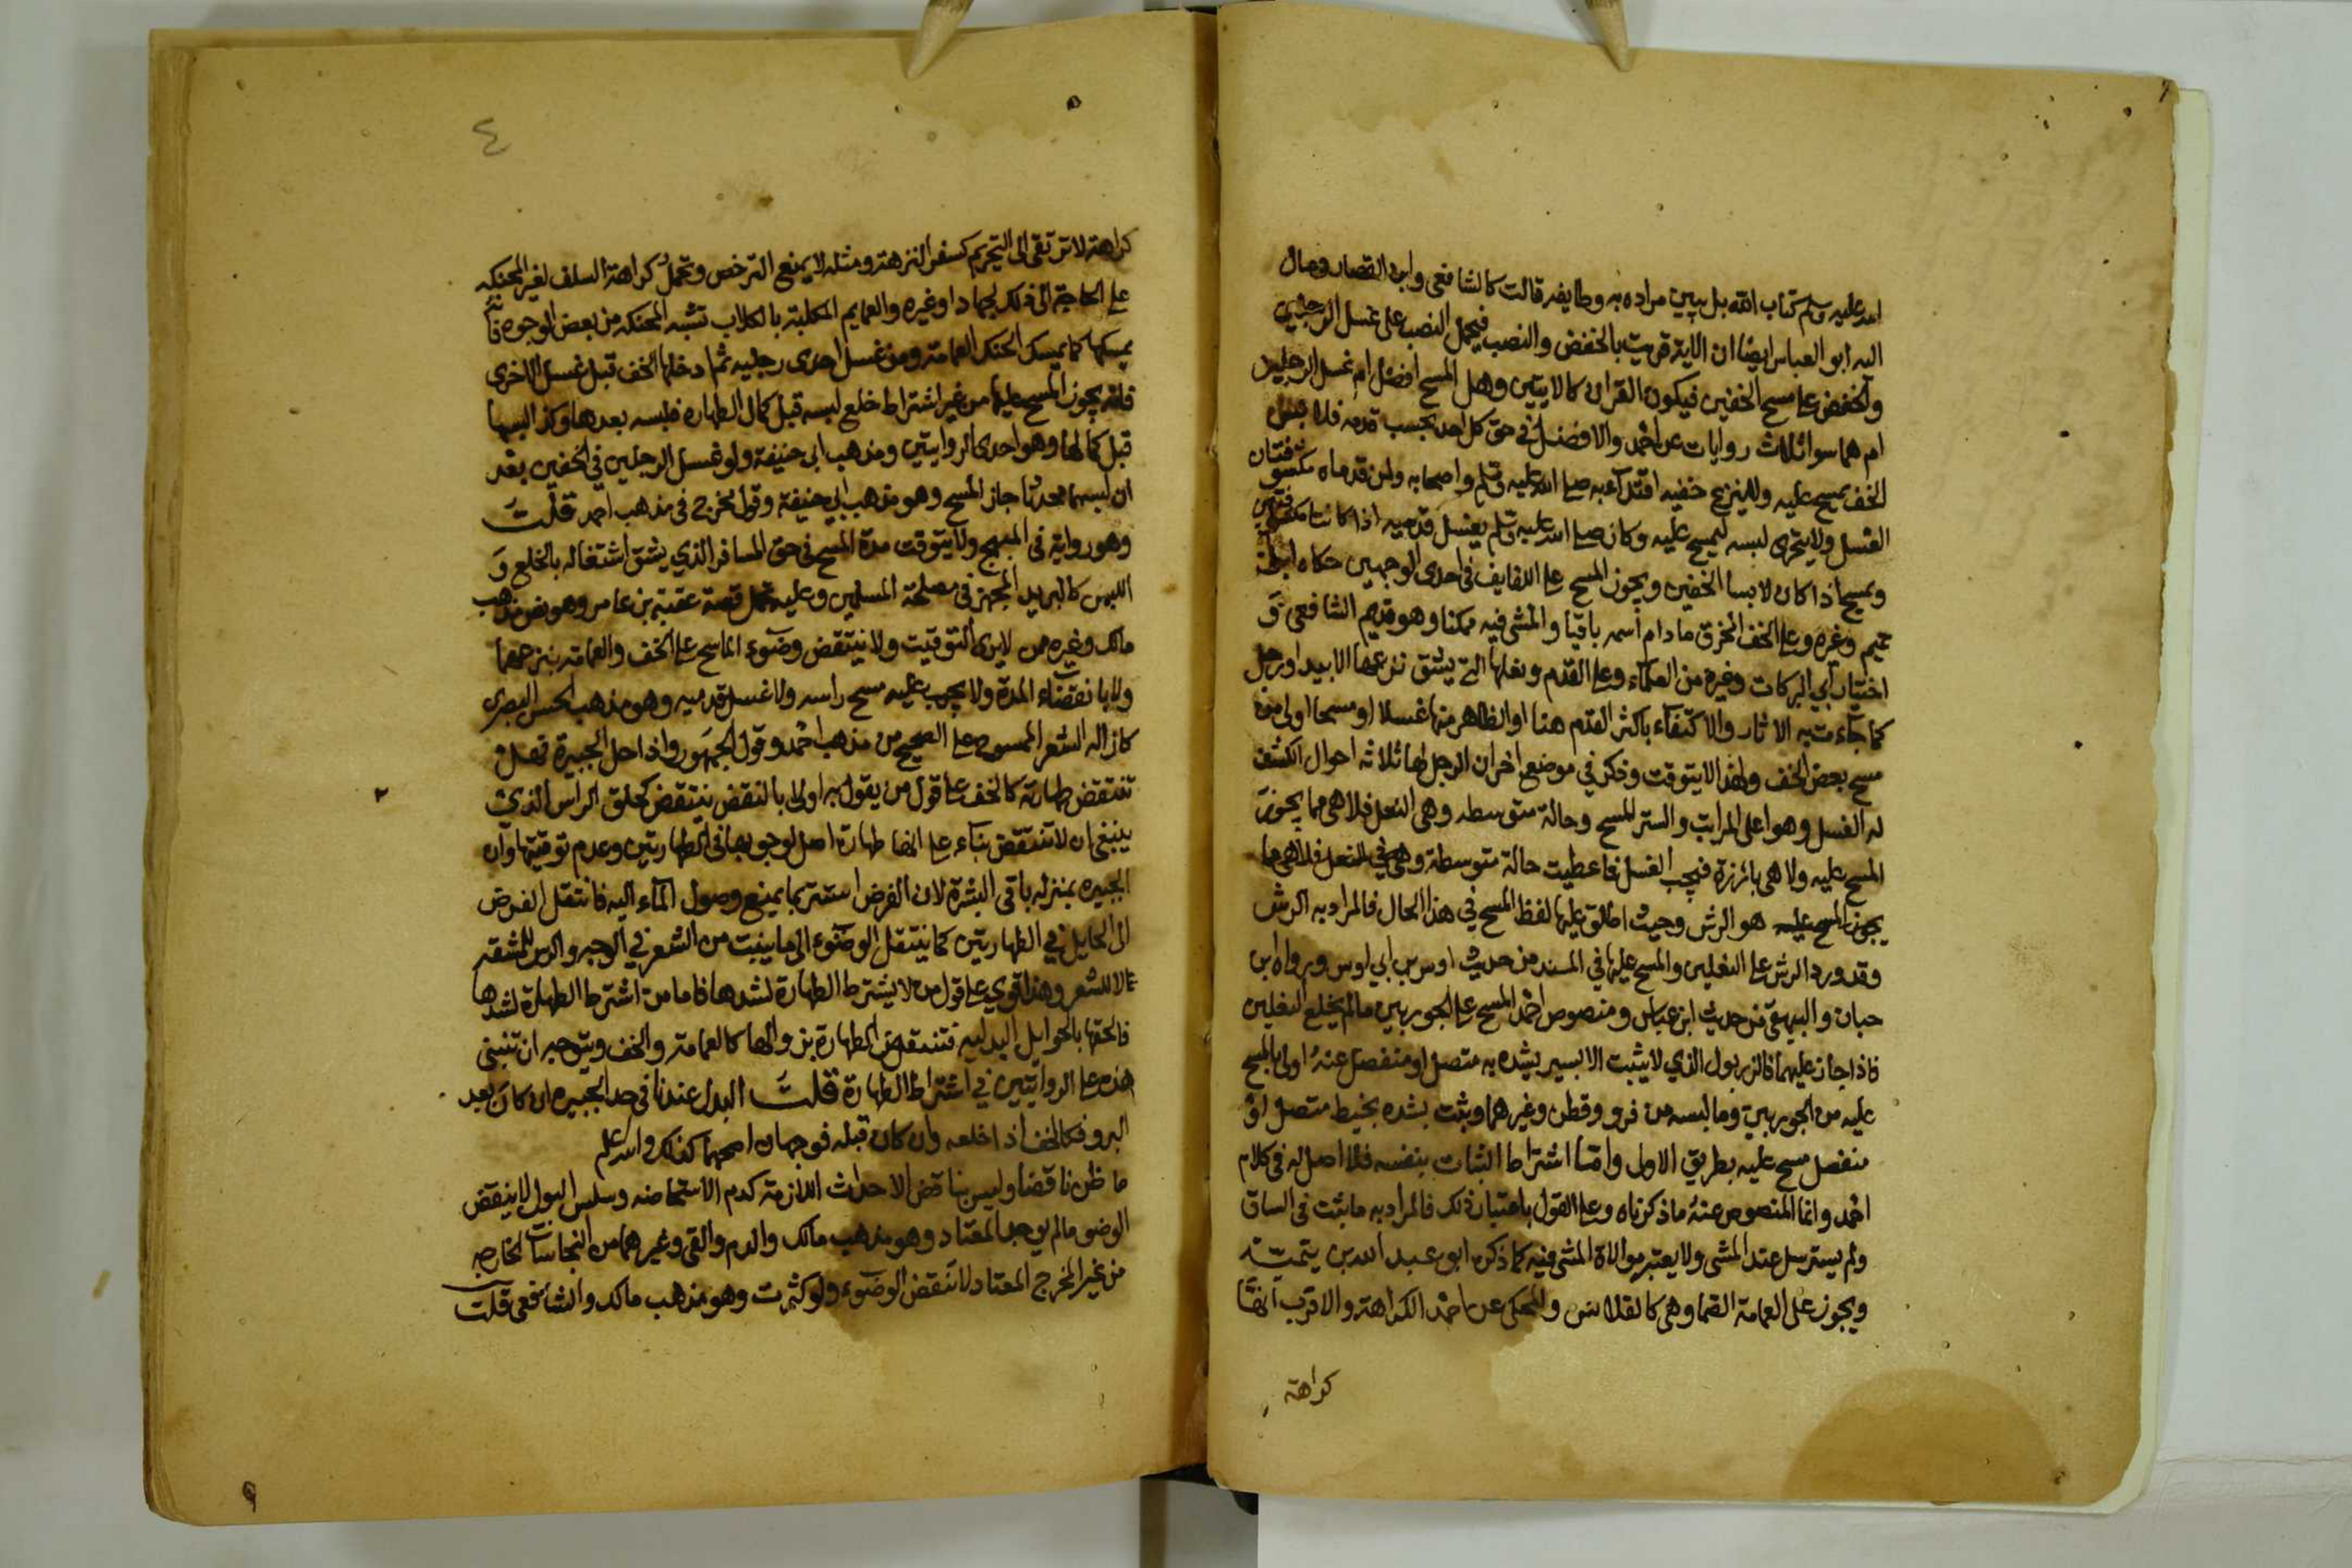 الله عليه وسلم كتاب الله بل يبين مراده به وطايفه قالت كالشافعي وابن القصار ومال
اليه ابو العباس ايضا ان الاية قريت بالخفض والنصب فيحمل النصب على غسل الرجلين
والخفض على مسح الخفين فيكون القران كالايتين وهل المسح افضل ام غسل الرجلين
ام هما سوا ثلاث روايات عن احمد والافضل في حق كل احد بحسب قدمه فلابس
الخف يمسح عليه ولا ينزع خفيه اقتداء به صلى الله عليه وسلم واصحابه ولمن قدماه مكشوفتان
الغسل ولا يتحرى لبسه ليمسح عليه وكان صلى الله عليه وسلم يغسل قدميه اذا كانتا مكشوفتين
ويمسح اذا كان لابسا الخفين ويجوز المسح على اللفايف في احدى الوجهين حكاه ابن
تميم وغيره وعلى الخف المخرق ما دام اسمه باقيا والمشي فيه ممكنا وهو قديم الشافعي و
اختيار ابي البركات وغيره من العلماء وعلى القدم ونعلها التي يشق نزعها الا بيد او رجل
كما جاءت به الاثار والاكتفاء باكثر القدم هنا او الظاهر منها غسلا او مسحا اولى من
مسح بعض الخف ولهذا لا يتوقت وذكر في موضع اخر ان الرجل لها ثلاثة احوال الكشف
له الغسل وهو اعلى المراتب والستر المسح وحالة متوسطه وهي النعل فلا هي مما يجوز
المسح عليه ولا هي بارزة فيجب الغسل فاعطيت حالة متوسطة وهي في النعل فلا هي مما
يجوز المسح عليه هو الرش وحيث اطلق عليها لفظ المسح في هذا الحال فالمراد به الرش
وقد ورد الرش على النعلين والمسح عليها في المسند من حديث اوس بن ابي اوس ورواه ابن
حبان والبيهقي من حديث ابن عباس ومنصوص احمد المسح على الجوربين مالم يخلع النعلين
فاذا جاز عليهما فالزربول الذي لا يثبت الا بسير يشده به متصل او منفصل عنه اولى بالمسح
عليه من الجوربين وما لبسه من فرو وقطن وغيرهما وثبت بشده بخيط متصل او
منفصل مسح عليه بطريق الاولى واما اشتراط الثبات بنفسه فلا اصل له في كلام
احمد وانما المنصوص عنه ما ذكرناه وعلى القول باعتبار ذلك فالمراد به ما ثبت في الساق
ولم يسترسل عند المشي ولا يعتبر موالاة المشي فيه كما ذكره ابو عبد الله بن تيمية
ويجوز على العمامة الصما وهي كالقلانس والمحكي عن احمد الكراهة والاقرب انها
كراهة
٤
كراهة لا ترتقي الى التحريم كسفر النزهة ومثله لا يمنع الترخص وتحمل كراهة السلف لغير المحنكه
على الحاجة الى ذلك لجهاد او غيره والعمايم المكلبة بالكلاب تشبه المحنكه من بعض الوجوه فانه
يمسكها كما يمسك الحنك العمامة ومن غسل احدى رجليه ثم ادخلها الخف قبل غسل الاخرى
فانه يجوز المسح عليها من غير اشتراط خلع لبسه قبل كمال الطهاره فلبسه بعدها وكذا لبسها
قبل كمالها وهو احدى الروايتين ومذهب ابي حنيفة ولو غسل الرجلين في الخفين بعد
ان لبسهما محدثا جاز المسح وهو مذهب ابي حنيفة وقول مخرج في مذهب احمد قلت
وهو رواية في المبهج ولا يتوقت مدة المسح في حق المسافر الذي يشق اشتغاله بالخلع و
اللبس كالبريد المجهز في مصلحة المسلمين وعليه تحمل قصة عقبة بن عامر وهو نص مذهب
مالك وغيره من لا يرى التوقيت ولا ينتقض وضوء الماسح على الخف والعمامة بنزعهما
ولا بانقضاء المدة ولا يجب عليه مسح راسه ولا غسل قدميه وهو مذهب الحسن البصري
كازالة الشعر الممسوح على الصحيح من مذهب احمد وقول الجمهور واذا حل الجبيرة فهل
تنتقض طهارته كالخف على قول من يقول به اولى بالنقض ينتقض كحلق الراس الذي
ينبغي ان لا تنتقض بناء على انها طهارة اصل لوجوبها في الطهارتين وعدم توقيتها وان
الجبيره بمنزلة باقي البشرة لان الفرض استتر بما يمنع وصول الماء اليه فانتقل الفرض
الى الحايل في الطهارتين كما ينتقل الوضوء الى ما ينبت من الشعر في الوجه والراس للمشقه
لا للشعر وهذا قوي على قول من لا يشترط الطهارة لشدها فاما من اشترط الطهارة لشدها
فالحقها بالحوايل البدليه فتنتقض الطهارة بزوالها كالعمامة والخف ويتوجه ان تنبني
هذه على الروايتين في اشتراط الطهارة قلت البدل عندنا في حد الجبيره ان كان بعد
البرو فكالخف اذا خلعه وان كان قبله فوجهان اصحهما كذلك والله اعلم
ما ظن ناقضا وليس بناقض الاحداث اللازمة كدم الاستحاضه وسلس البول لا ينقض
الوضو مالم يوجد المعتاد وهو مذهب مالك والدم والقي وغيرهما من النجاسات الخارجه
من غير المخرج المعتاد لا تنقض الوضوء ولو كثرت وهو مذهب مالك والشافعي قلت